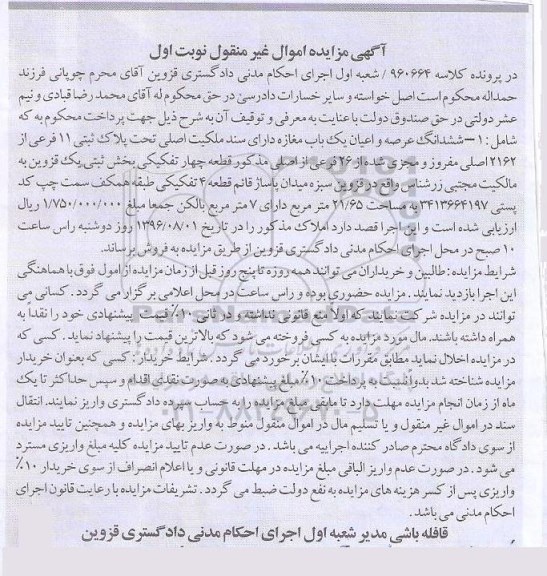 آگهی مزایده اموال غیر منقول نوبت اول
در پرونده کلاسه ۹۶۰۶۶۴ / شعبه اول اجرای احکام مدنی دادگستری قزوین آقای محرم چوپانی فرزند
حمداله محکوم است اصل خواسته و سایر خسارات دادرسی در حق محکوم له آقای محمد رضا قبادی و نیم
عشر دولتی در حق صندوق دولت با عنایت به معرفی و توقیف آن به شرح ذیل جهت پرداخت محکوم به که
شامل : ۱– ششدانگ عرصه و اعیان یک باب مغازه دارای سند ملکیت اصلی تحت پلاک ثبتی ۱۱ فرعی از
۲۱۶۲ اصلی مفروز و مجزی شده از ۲۶ فرعی از اصلی مذکور قطعه چهار تفکیکی بخش ثبتی یک قزوین به
مالکیت مجتبی زرشناس واقع در قزوین سبزه میدان پاساژ قائم قطعه ۴ تفکیکی طبقه همکف سمت چپ کد
پستی ۳۴۱۳۶۶۴۱۹۷ به مساحت ۲۱/۶۵ متر مربع دارای ۷ متر مربع بالکن جمعا مبلغ ۱/۷۵۰/۰۰۰/۰۰۰ ریال
ارزیابی شده است و این اجرا قصد دارد املاک مذکور را در تاریخ ۱۳۹۶/۰۸/۰۱ روز دوشنبه راس ساعت
۱۰ صبح در محل اجرای احکام مدنی دادگستری قزوین از طریق مزایده به فروش برساند.
شرایط مزایده : طالبین و خریداران می توانند همه روزه تا پنج روز قبل از زمان مزایده از اموال فوق با هماهنگی
این اجرا بازدید نمایند . مزایده حضوری بوده و راس ساعت در محل اعلامی برگزار می گردد . کسانی می
توانند در مزایده شرکت نمایند که اولاً منع قانونی نداشته و در ثانی ۱۰٪ قیمت پیشنهادی خود را نقدا به
همراه داشته باشند. مال مورد مزایده به کسی فروخته می شود که بالاترین قیمت را پیشنهاد نماید . کسی که
در مزایده اخلال نماید مطابق مقررات با ایشان برخورد می گردد . شرایط خریدار : کسی که بعنوان خریدار
مزایده شناخته شد بدوا نسبت به پرداخت ۱۰٪ مبلغ پیشنهادی به صورت نقدی اقدام و سپس حداکثر تا یک
ماه از زمان انجام مزایده مهلت دارد تا مابقی مبلغ مزایده را به حساب سپرده دادگستری واریز نمایند. انتقال
سند در اموال غیر منقول و یا تسلیم مال در اموال منقول منوط به واریز بهای مزایده و همچنین تایید مزایده
از سوی دادگاه محترم صادر کننده اجراییه می باشد . در صورت عدم تایید مزایده کلیه مبلغ واریزی مسترد
می شود . در صورت عدم واریز الباقی مبلغ مزایده در مهلت قانونی و یا اعلام انصراف از سوی خریدار ۱۰٪
واریزی پس از کسر هزینه های مزایده به نفع دولت ضبط می گردد . تشریفات مزایده با رعایت قانون اجرای
احکام مدنی می باشد .
قافله باشی مدیر شعبه اول اجرای احکام مدنی دادگستری قزوین